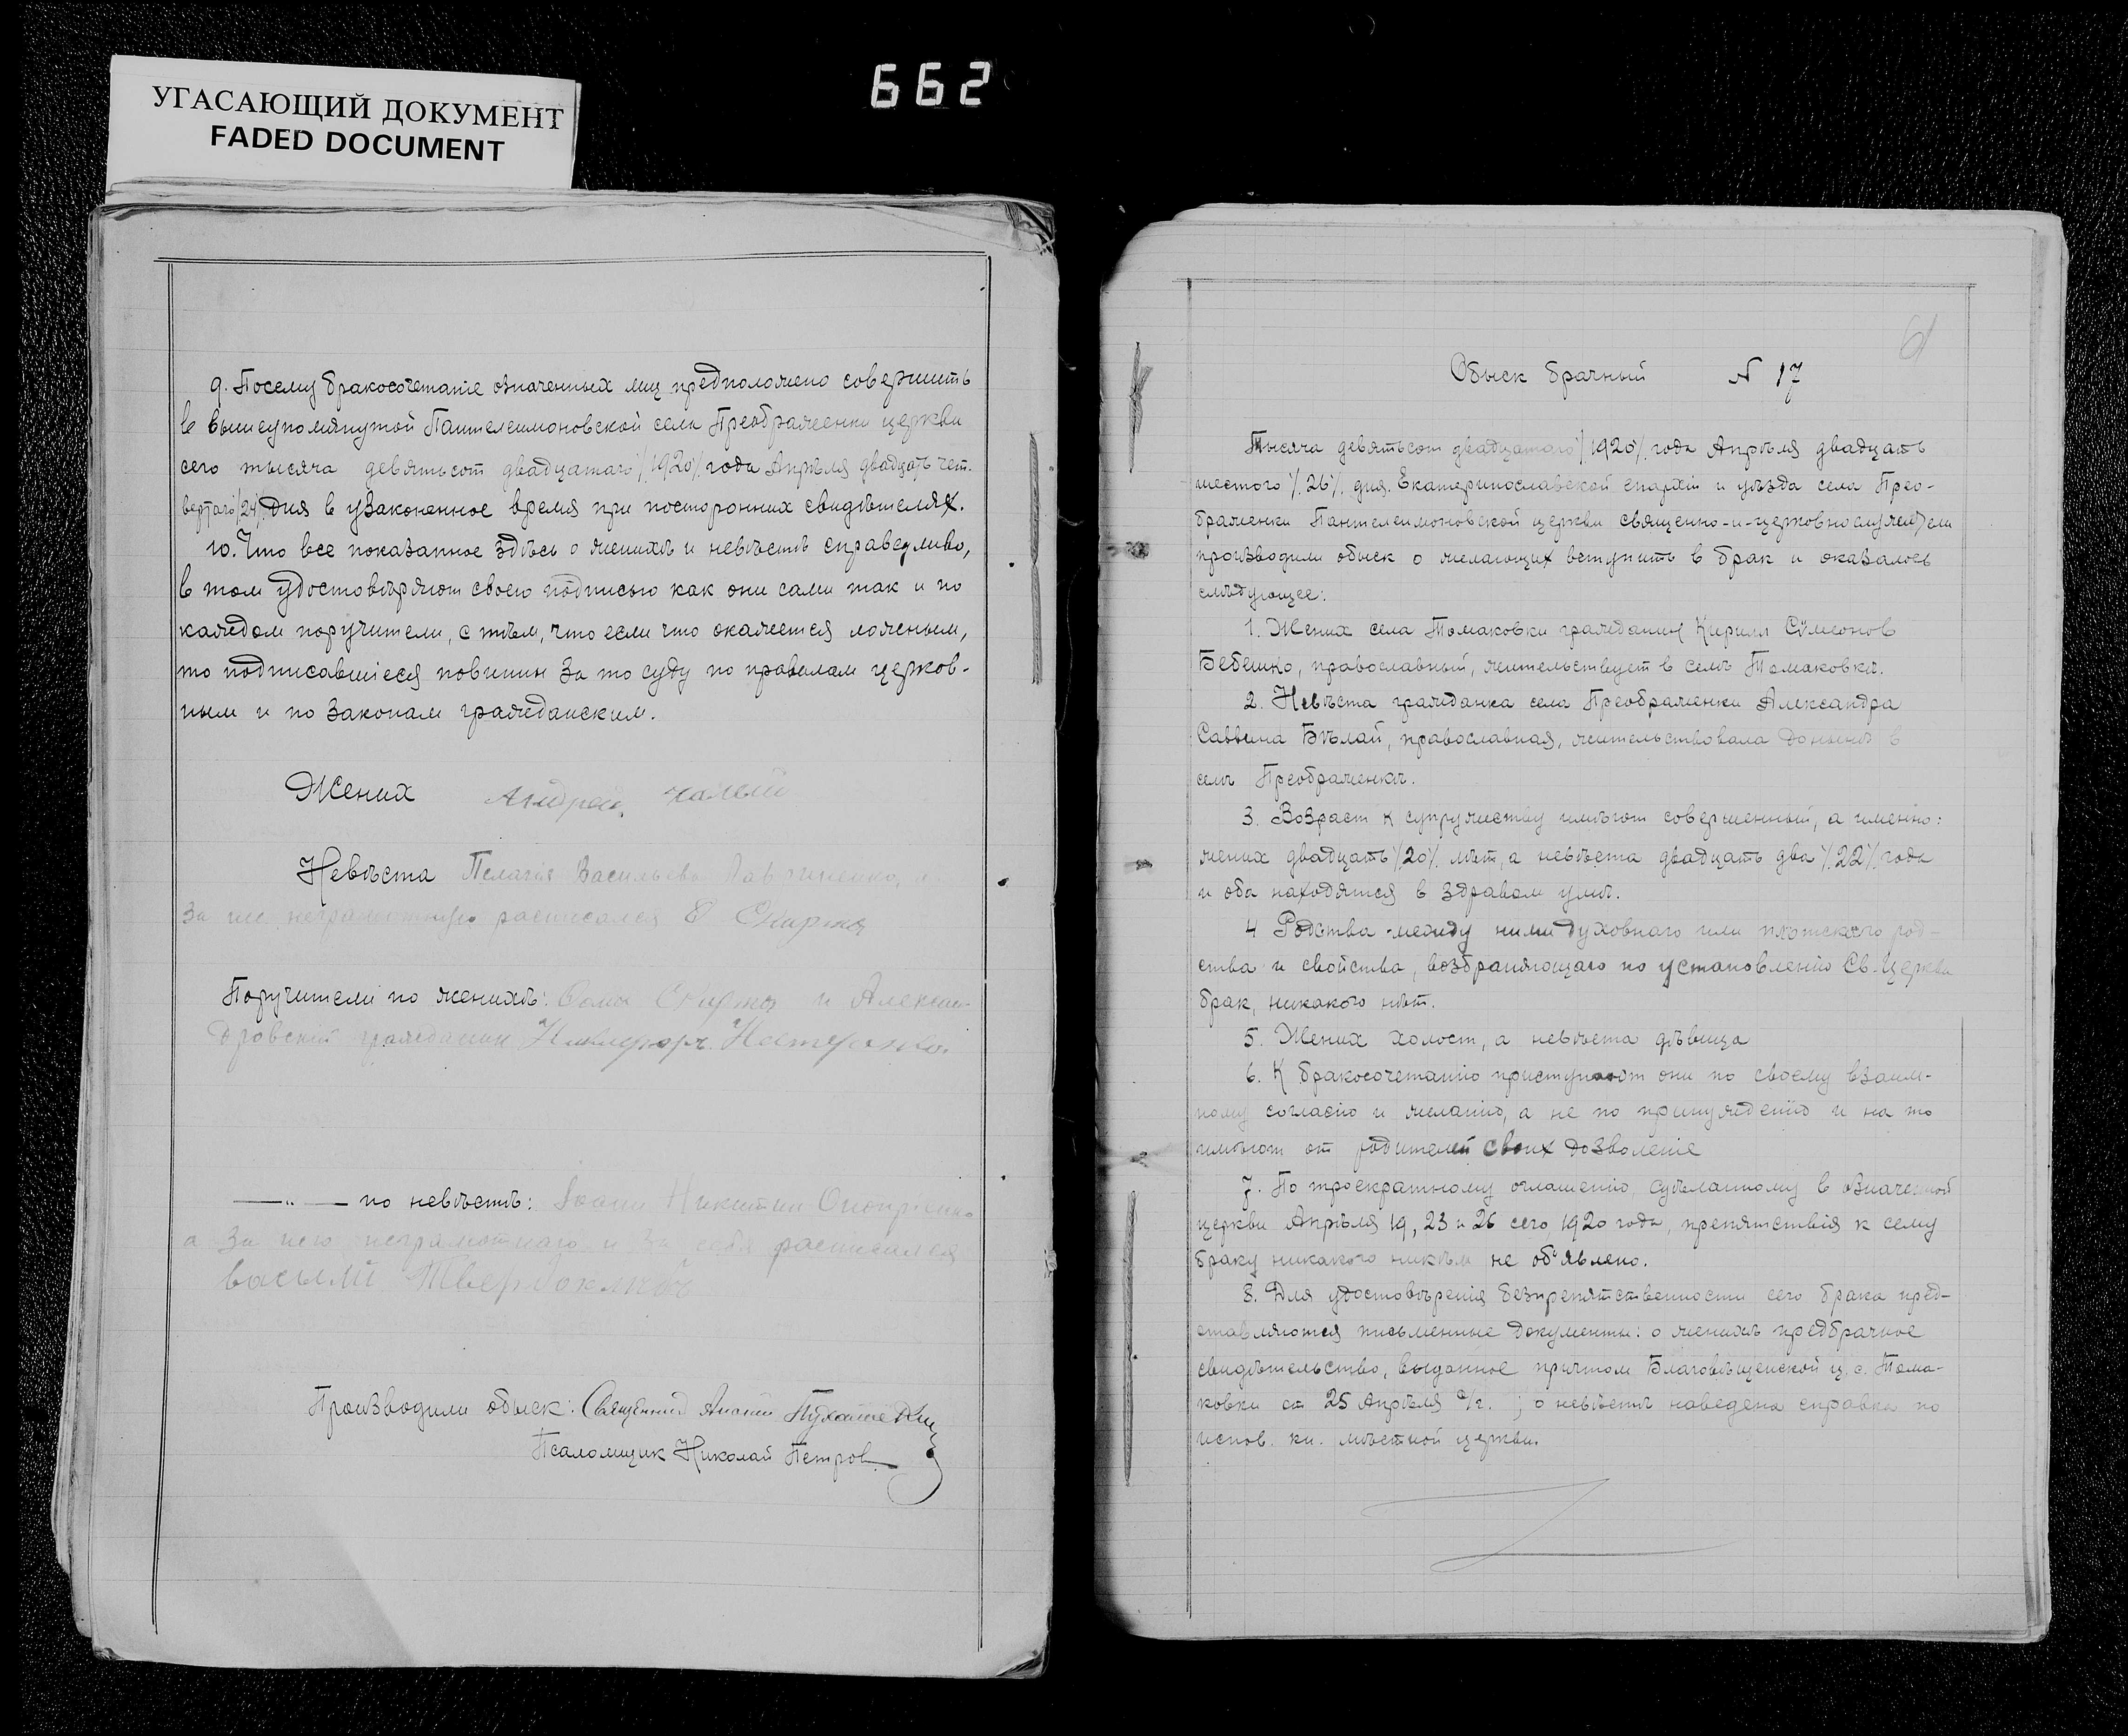 УГАСАЮЩИЙ ДОКУМЕНТ
FADED DOCUMENT
662
9. Посему бракосочетаніе означенных лиц предположено совершить
в вышеупомянутой Пантелеимоновской села Преображенки церкви
сего тысяча девятьсот двадцатаго /.1920/. года Апрѣля двадцать чет-
вертаго /.24/. дня в узаконенное время при посторонних свидѣтелях.
10. Что все показанное здѣсь о женихѣ и невѣстѣ справедливо,
в том удостовѣряют своею подписью как они сами так и по
каждом поручители, с тѣм, что если что окажется ложным,
то подписавшіеся повинни за то суду по правилам церков-
ным и по законам гражданским.
Жених Андрей
Невѣста Пелагія Васильева Лавриненко, а
за не неграмотную расписался Ѳ Скирта
Поручители по женихѣ: Ѳома Скирта и Алексан-
дровскій гражданин Никифор Нестеренко.
—„— по невѣстѣ: Іоанн Никитин Оноприенко
а за него неграмотнаго и за себя расписался
василий Твердохлеб
Производили обыск: Священник
Псаломщик Николай Петров
61
Обыск брачный N 17
Тысяча девятьсот двадцатого /.1920/. года Апрѣля двадцать
шестого /.26/. дня. Екатеринославской епархіи и уѣзда села Прео-
браженки Пантелеимоновской церкви священно-и-церковнослужители
производили обыск о желающих вступить в брак и оказалось
слѣдующее:
1. Жених села Томаковки гражданин Кирилл Сѵмеонов
Бебешко, православный, жительствует в селѣ Томаковкѣ.
2. Невѣста гражданка села Преображенки Александра
Саввина Бѣлай, православная, жительствовала донынѣ в
селѣ Преображенкѣ.
3. Возраст к супружеству имѣют совершенный, а именно:
жених двадцать /.20/. лѣт, а невѣста двадцать два /.22/. года
и оба находятся в здравом умѣ.
4 Родства между ними духовнаго или плотского род-
ства и свойства, возбраняющаго по установленію Св. Церкви
брак, никакого нѣт.
5. Жених холост, а невѣста дѣвица
6. К бракосочетанію приступают они по своему взаим-
ному согласію и желанію, а не по принужденію и на то
имѣют от родителей своих дозволеніе
7. По троекратному оглашенію, сдѣланному в означенной
церкви Апрѣля 19, 23 и 26 сего 1920 года, препятствія к сему
браку никакого никѣм не объявлено.
8. Для удостовѣренія безпрепятственности сего брака пред-
ставляются письменные документы: о женихѣ предбрачное
свидѣтельство, выданное причтом Благовѣщенской ц. с. Тома-
ковки от 25 Апрѣля с/г. ; о невѣстѣ наведена справка по
испов. кн. мѣстной церкви.